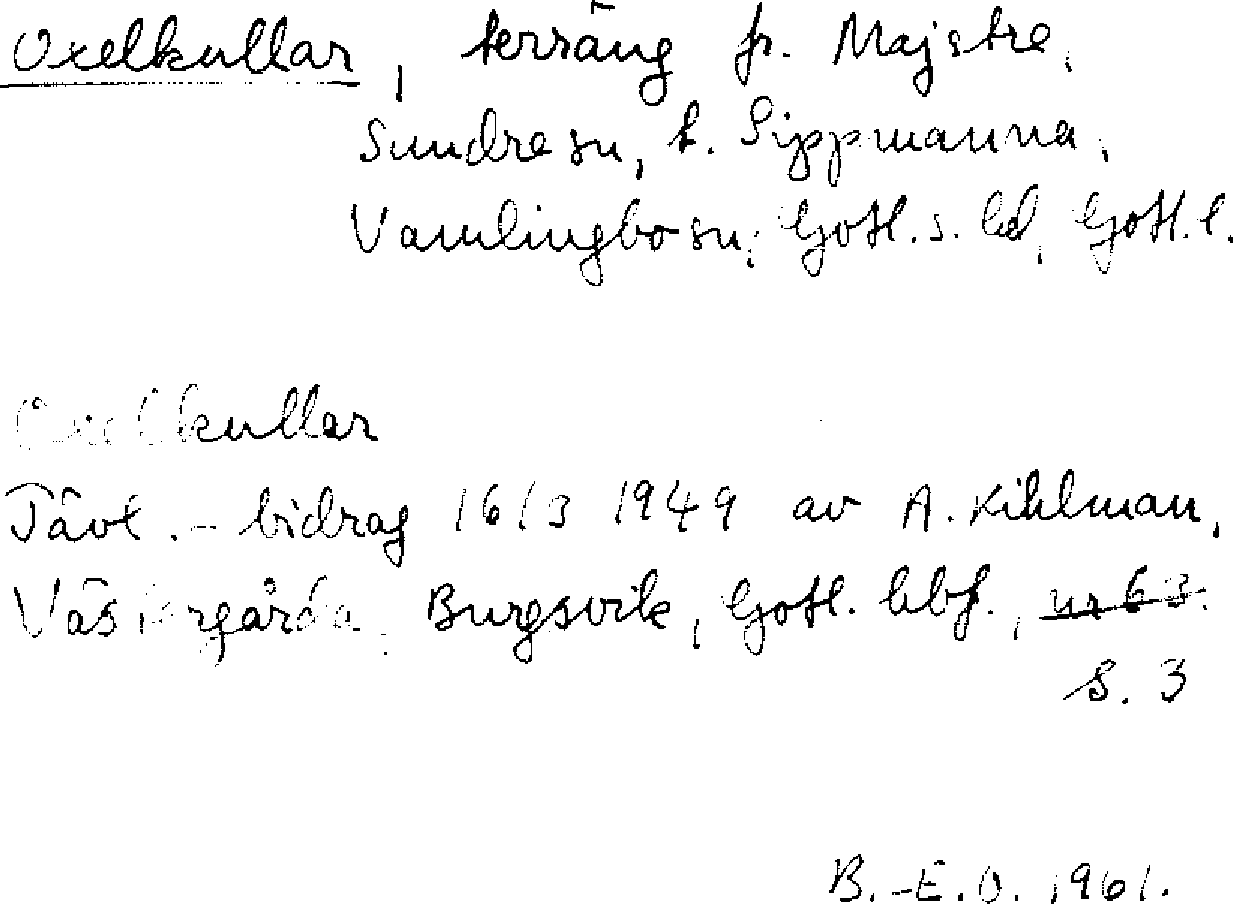 Oxelkullar, terräng fr. Majstre,
Sundre sn, t. Sippmanna,
Vamlingbo sn, Gotl. s. hd, Gotl. l.
Oxelkullar
Tävl.-bidrag 16/3 1949 av A. Kihlman,
Västergårda, Burgsvik, Gotl. hbf., nr 63.
S. 3
B.-E.O. 1961.